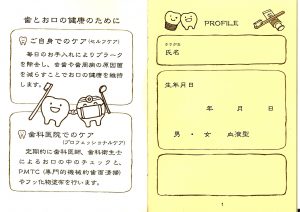 歯とお口の健康のために
ご自身でのケア(セルフケア)
毎日のお手入れによりプラーク
を除去し、虫歯や歯周病の原因菌
を減らすことでお口の健康を維持
します。
歯科医院でのケア
(プロフェッショナルケア)
定期的に歯科医師、歯科衛生士
によるお口の中のチェックと、
PMTC(専門的機械的歯面清掃)
やフッ化物塗布を行います。
PROFILE
フリガナ
氏名
生年月日
年 月 日
男・女 血液型
1